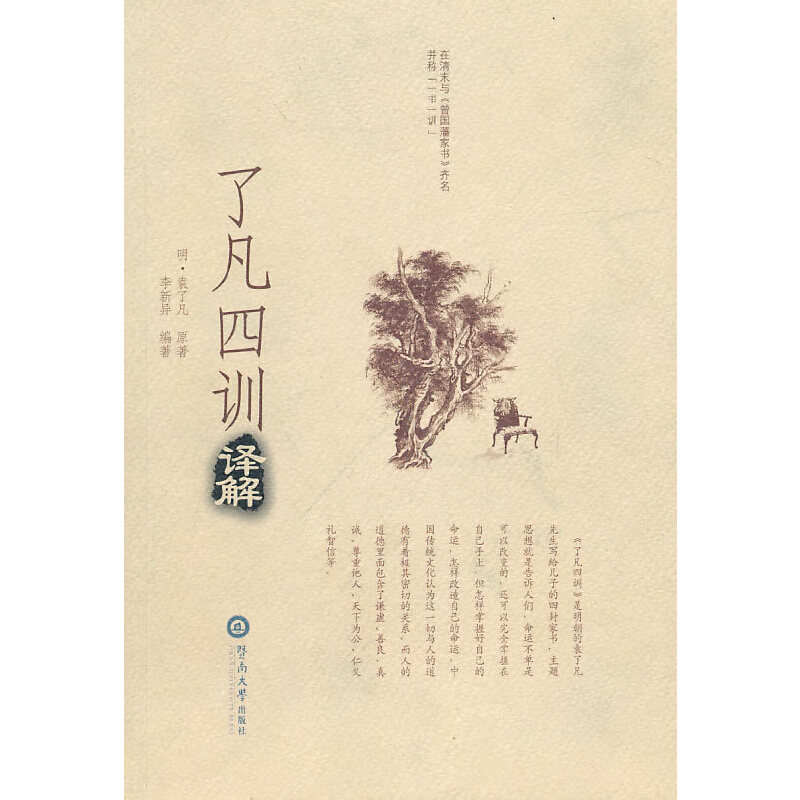 在清末与《曾国藩家书》齐名
并称「一书一训」
了凡四训
译解
明·袁了凡 原著
李新异 编著
《了凡四训》是明朝的袁了凡
先生写给儿子的四封家书,主题
思想就是告诉人们,命运不单是
可以改变的,还可以完全掌握在
自己手上。但怎样掌握好自己的
命运,怎样改造自己的命运,中
国传统文化认为这一切与人的道
德有着极其密切的关系,而人的
道德里面包含了谦虚、善良、真
诚、尊重他人、天下为公、仁义
礼智信等。
暨南大学出版社